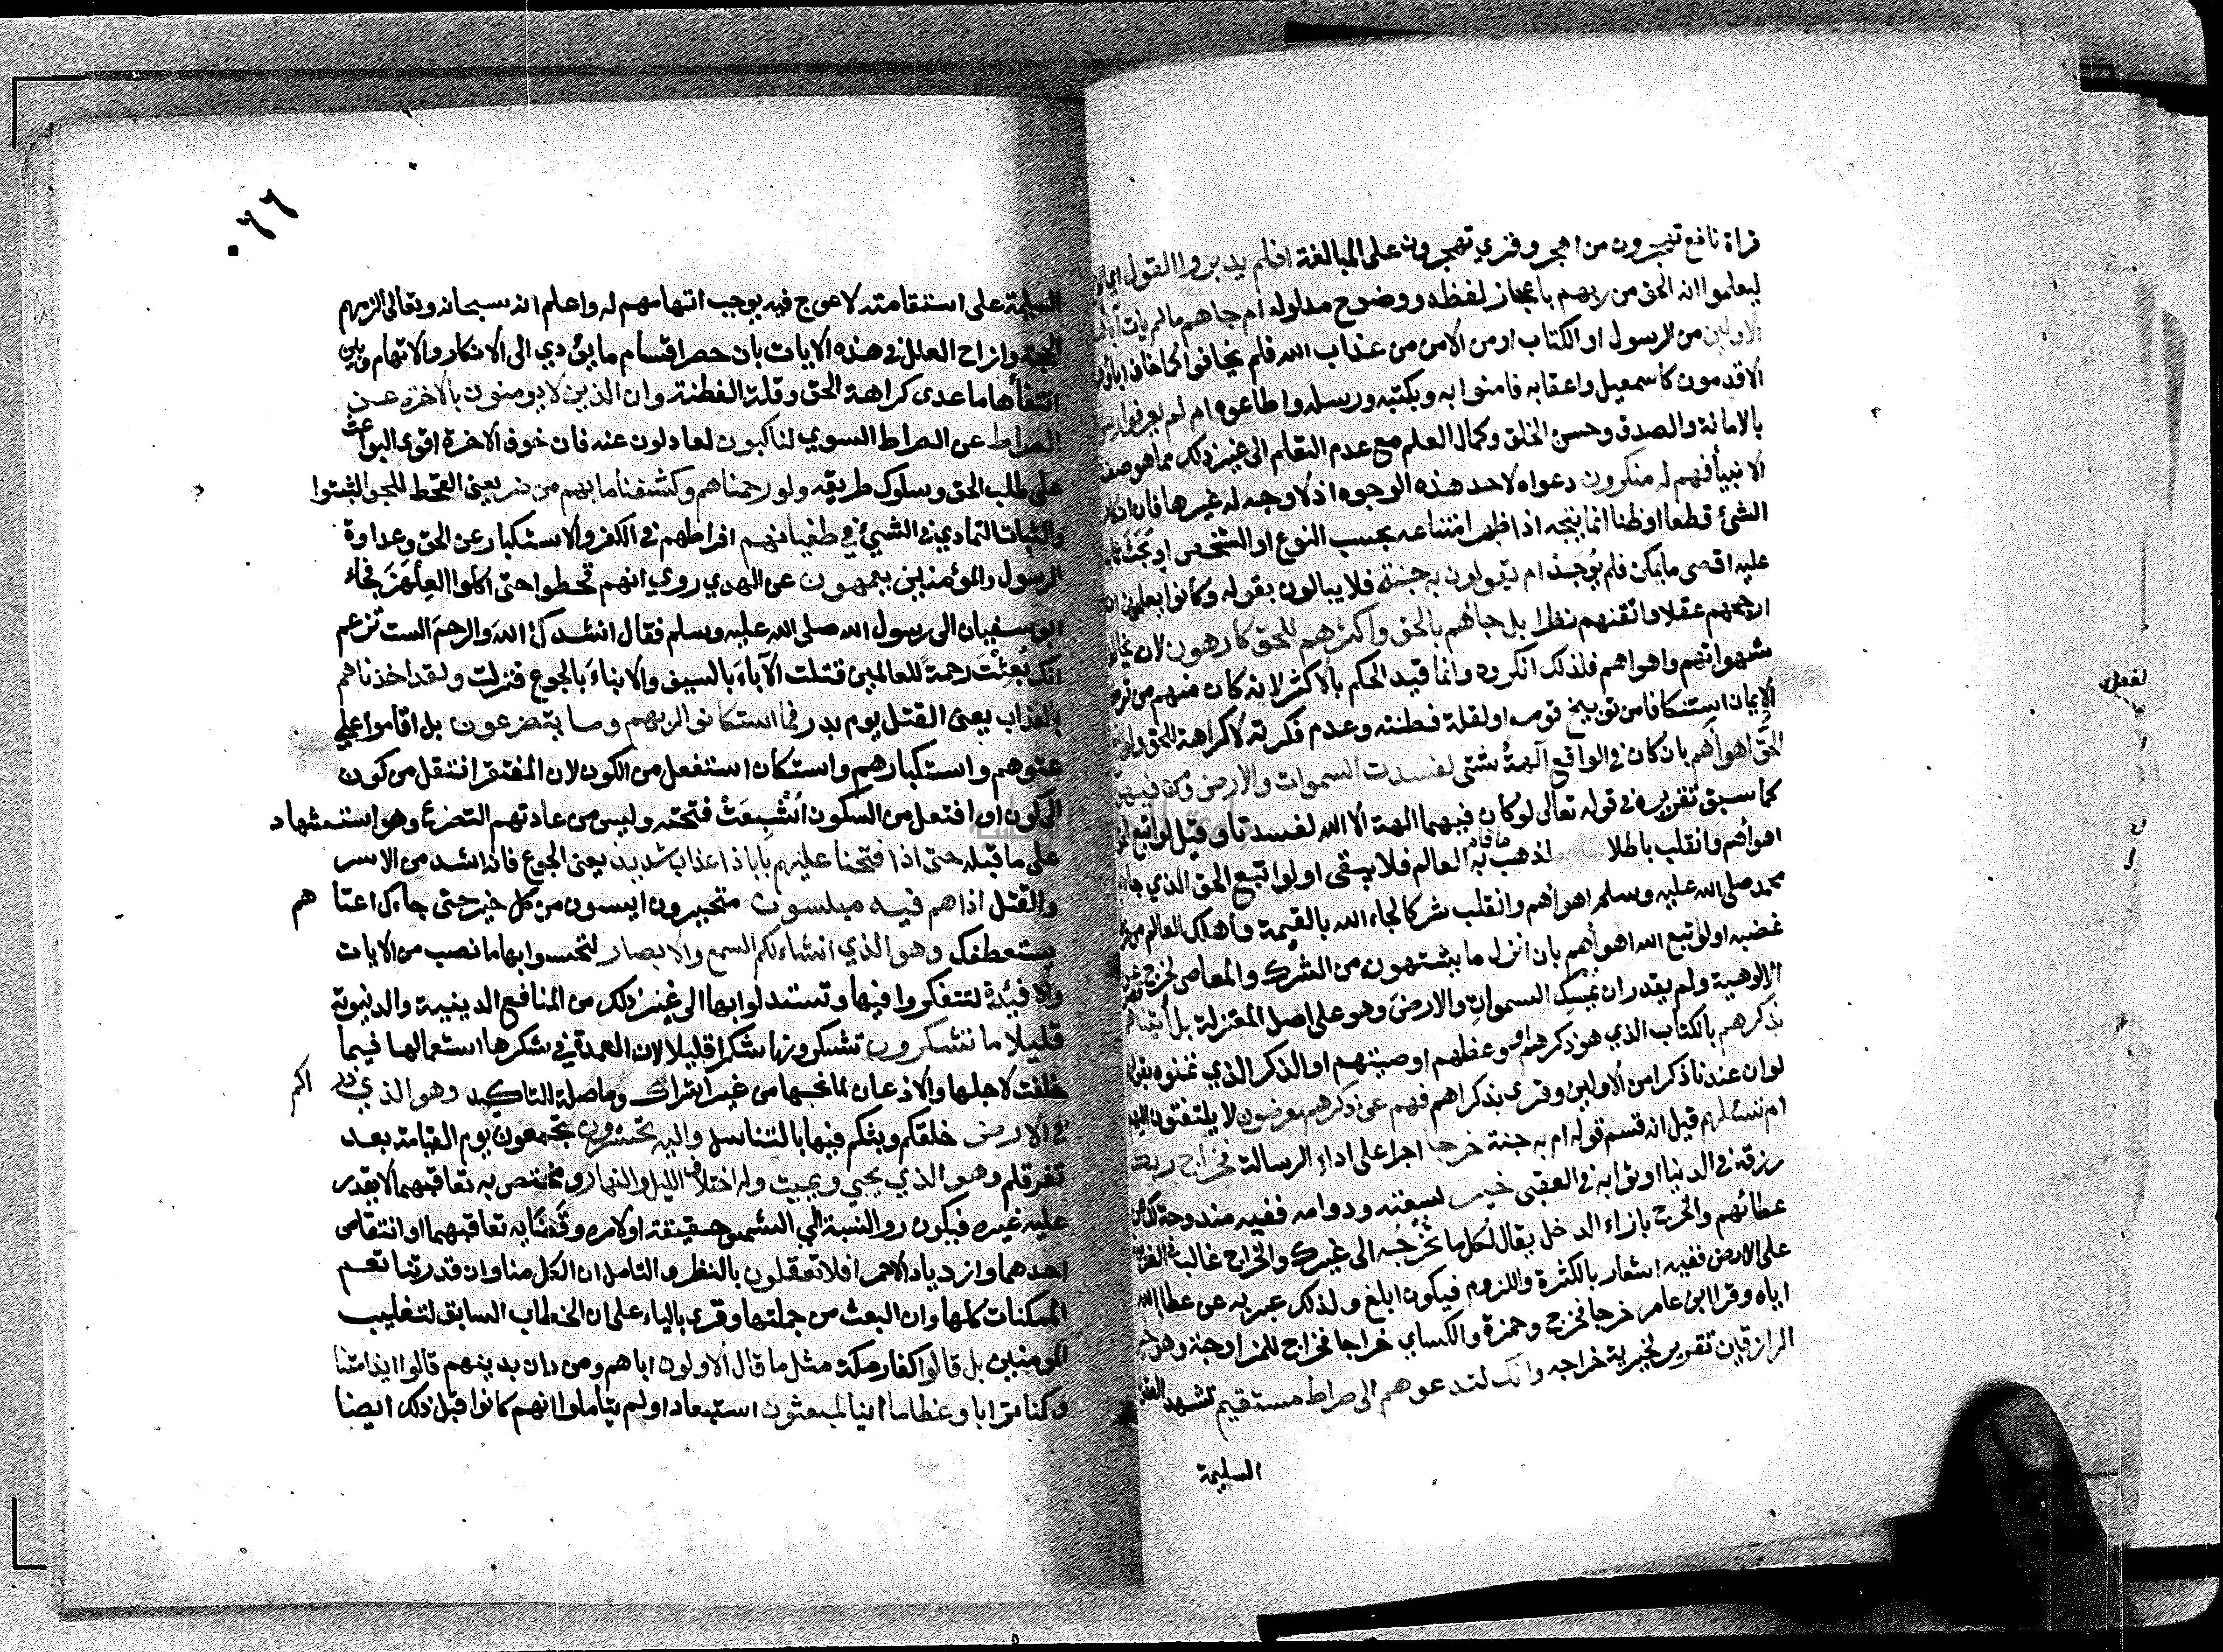 قراة نافع تهجرون من اهجر وقري تهجرون على المبالغة افلم يدبروا القول اي القران
ليعلموا انه الحق من ربهم باعجاز لفظه ووضوح مدلوله ام جاهم مالم يات آباهم
الاولين من الرسول او الكتاب او من الامن من عذاب الله فلم يخافوا كما خاف اباؤهم
الاقدمون كاسمعيل واعقابه فامنوا به وبكتبه ورسله واطاعوه ام لم يعرفوا رسولهم
بالامانة والصدق وحسن الخلق وكمال العلم مع عدم التعلم الى غير ذلك مما هو صفة
الانبيأ فهم له منكرون دعواه لاحد هذه الوجوه اذ لا وجه له غيرها فان انكار
الشئ قطعا او ظنا انما يتجه اذا ظهر امتناعه بحسب النوع او الشخص او بَحَثَ عما يدل
عليه اقصى ما يمكن فلم يُوجد ام يقولون به جنة فلا يبالون بقوله وكانوا يعلمون انه
ارجحهم عقلا واتقنهم نظرا بل جاءهم بالحق واكثرهم للحق كارهون لانه يخالف
شهواتهم واهواهم فلذلك انكروه وانما قيد الحكم بالاكثر لانه كان منهم من ترك
الإيمان استنكافا من توبيخ قومه او لقلة فطنته وعدم فكرته لا كراهة للحق ولو اتبع
الحَقُّ اهوأهم بان كان في الواقع آلهةٌ شتى لفسدت السموات والارض ومن فيهن
كما سبق تقريره في قوله تعالى لو كان فيهما الهة الا الله لفسدتا وقيل لو اتبع الحق
اهوأهم وانقلب باطلا لذهب ما قام به العالم فلا يبقى او لو اتبع الحق الذي جاء به
محمد صلى الله عليه وسلم اهوأهم وانقلب شركا لجاء الله بالقيمة واهلك العالم من فرط
غضبه او لو اتبع الله اهوأهم بان انزل ما يشتهون من الشرك والمعاصى لخرج عن
الالوهية ولم يقدر ان يمسِك السموات والارضَ وهو على اصل المعتزلة بل أتيناهم
بذكرهم بالكتاب الذي هو ذكرهم او وعظهم او صيتهم او الذكر الذي تمنوه بقولهم
لو ان عندنا ذكرا من الاولين وقري بذكراهم فهم عن ذكرهم معرضون لا يلتفتون اليه
ام تسئلهم قيل انه قسم قوله ام به جنة خرجا اجرا على اداء الرسالة فخراج ربك
رزقه في الدنيا او ثوابه في العقبى خير لسعته ودوامه ففيه مندوحة لك عن
عطائهم والخرج بازاء الدخل يقال لكل ما تُخْرِجُه الى غيرك والخراج غالب في الضريبة
على الارض ففيه اشعار بالكثرة واللزوم فيكون ابلغ ولذلك عبر به عن عطاء الله
اياه وقرا ابن عامر خرجا فخرج وحمزة والكساي خراجا فخراج للمزاوجة وهو خير
الرازقين تقرير لخيرية خراجه وانك لتدعوهم الى صراط مستقيم تشهد العقول
السليمة
٥٦٦
السليمة على استقامته لا عوج فيه يوجب اتهامهم له واعلم انه سبحانه وتعالى الزمهم
الحجة وازاح العلل في هذه الايات بان حصر اقسام ما يؤدي الى الانكار والاتهام وبين
انتفأها ما عدى كراهة الحق وقلة الفطنة وان الذين لا يومنون بالاخرة عن
الصراط عن الصراط السوي لناكبون لعادلون عنه فان خوف الاخرة اقوى البواعث
على طلب الحق وسلوك طريقه ولو رحمناهم وكشفنا ما بهم من ضر يعنى القحط للجوا لثبتوا
والثبات التمادي في الشيئ في طغيانهم افراطهم في الكفر والاستكبار عن الحق وعداوة
الرسول والمؤمنين يعمهون عن الهدي روي انهم قحطوا حتى اكلوا العِلْهِزَ فجاء
ابو سفيان الى رسول الله صلى الله عليه وسلم فقال انشدك اللهَ والرحمَ الست تزعم
انك بُعِثْتَ رحمةً للعالمين قتلت الآباءَ بالسيف والابناءَ بالجوع فنزلت ولقد اخذناهم
بالعذاب يعنى القتل يوم بدر فما استكانوا لربهم وما يتضرعون بل اقاموا على
عتوهم واستكبارهم واستكان استفعل من الكون لان المفتقر انتقل من كون
الى كون او افتعل من السكون اُشْبِعَتْ فتحته وليس من عادتهم التضرع وهو استشهاد
على ما قبله حتى اذا فتحنا عليهم بابا ذا عذاب شديد يعنى الجوع فانه اشد من الاسر
والقتل اذا هم فيه مبلسون متحيرون ايسون من كل خير حتى جاءك اعتا هم
يستعطفك وهو الذي انشاء لكم السمع والابصار لتحسوا بها ما نصب من الايات
والافئدة لتتفكروا فيها وتستدلوا بها الى غير ذلك من المنافع الدينية والدنيوية
قليلا ما تشكرون تشكرونها شكرا قليلا لان العمدة في شكرها استعمالها فيما
خلقت لاجلها والاذعان لمانحها من غير اشراك وما صلة للتاكيد وهو الذي ذرا اكم
في الارض خلقكم وبثكم فيها بالتناسل واليه تحشرون تجمعون يوم القيامة بعد
تفرقكم وهو الذي يحيي ويميت وله اختلاف الليل والنهار ومختص به تعاقبهما لا يقدر
عليه غيره فيكون رد النسبة الي الشمس حقيقة او لامره وقَضَايه تعاقبهما او انتقاص
احدهما وازدياد الاخر افلا تعقلون بالنظر والتامل ان الكل منا وان قدرتنا تعم
الممكنات كلها وان البعث من جملتها وقري بالياء على ان الخطاب السابق لتغليب
المومنين بل قالوا كفار مكة مثل ما قال الاولون اباهم ومن دان بدينهم قالوا ايذا متنا
وكنا ترابا وعظاما اينا لمبعثون استبعادا ولم يتاملوا انهم كانوا قبل ذلك ايضا